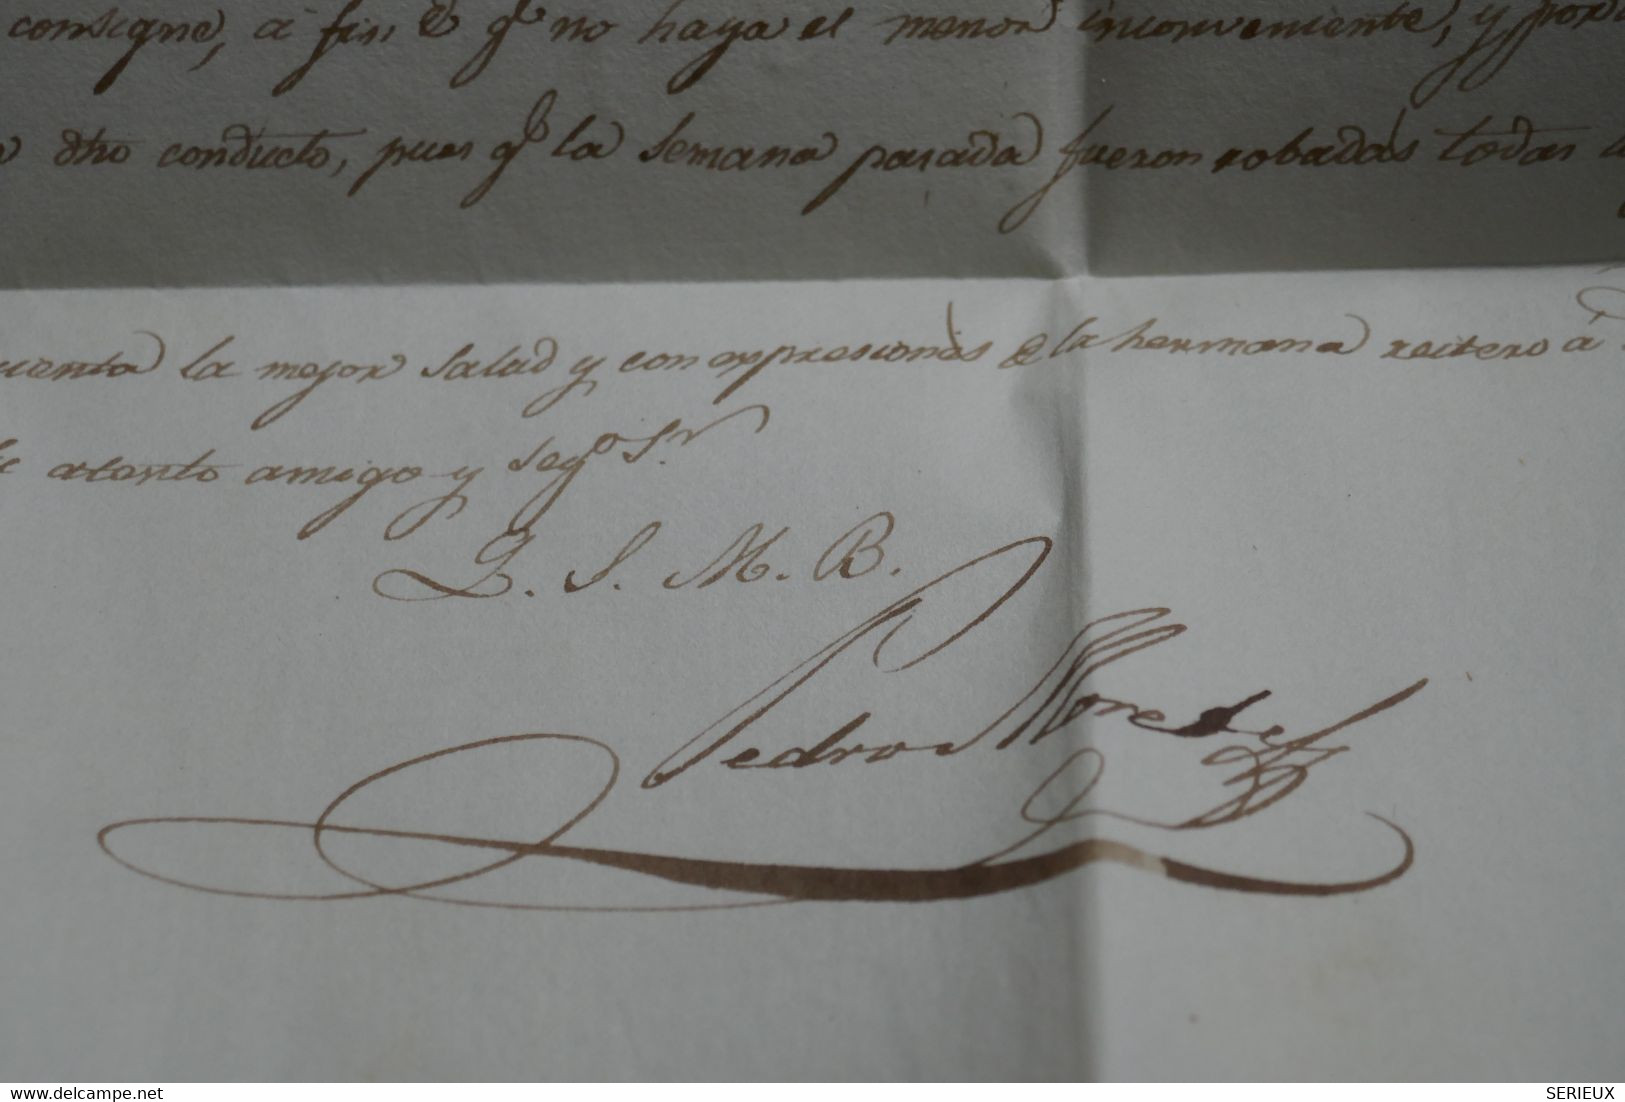 consigne, á fin de qe no haya el menor inconveniente, y por
dho conducto, pues qe la semana pasada fueron robadas todas
la mejor salud y con expresiones de la hermana reitero á
atento amigo y segº Sr
Q. S. M. B.
Pedro
www.delcampe.net
SERIEUX